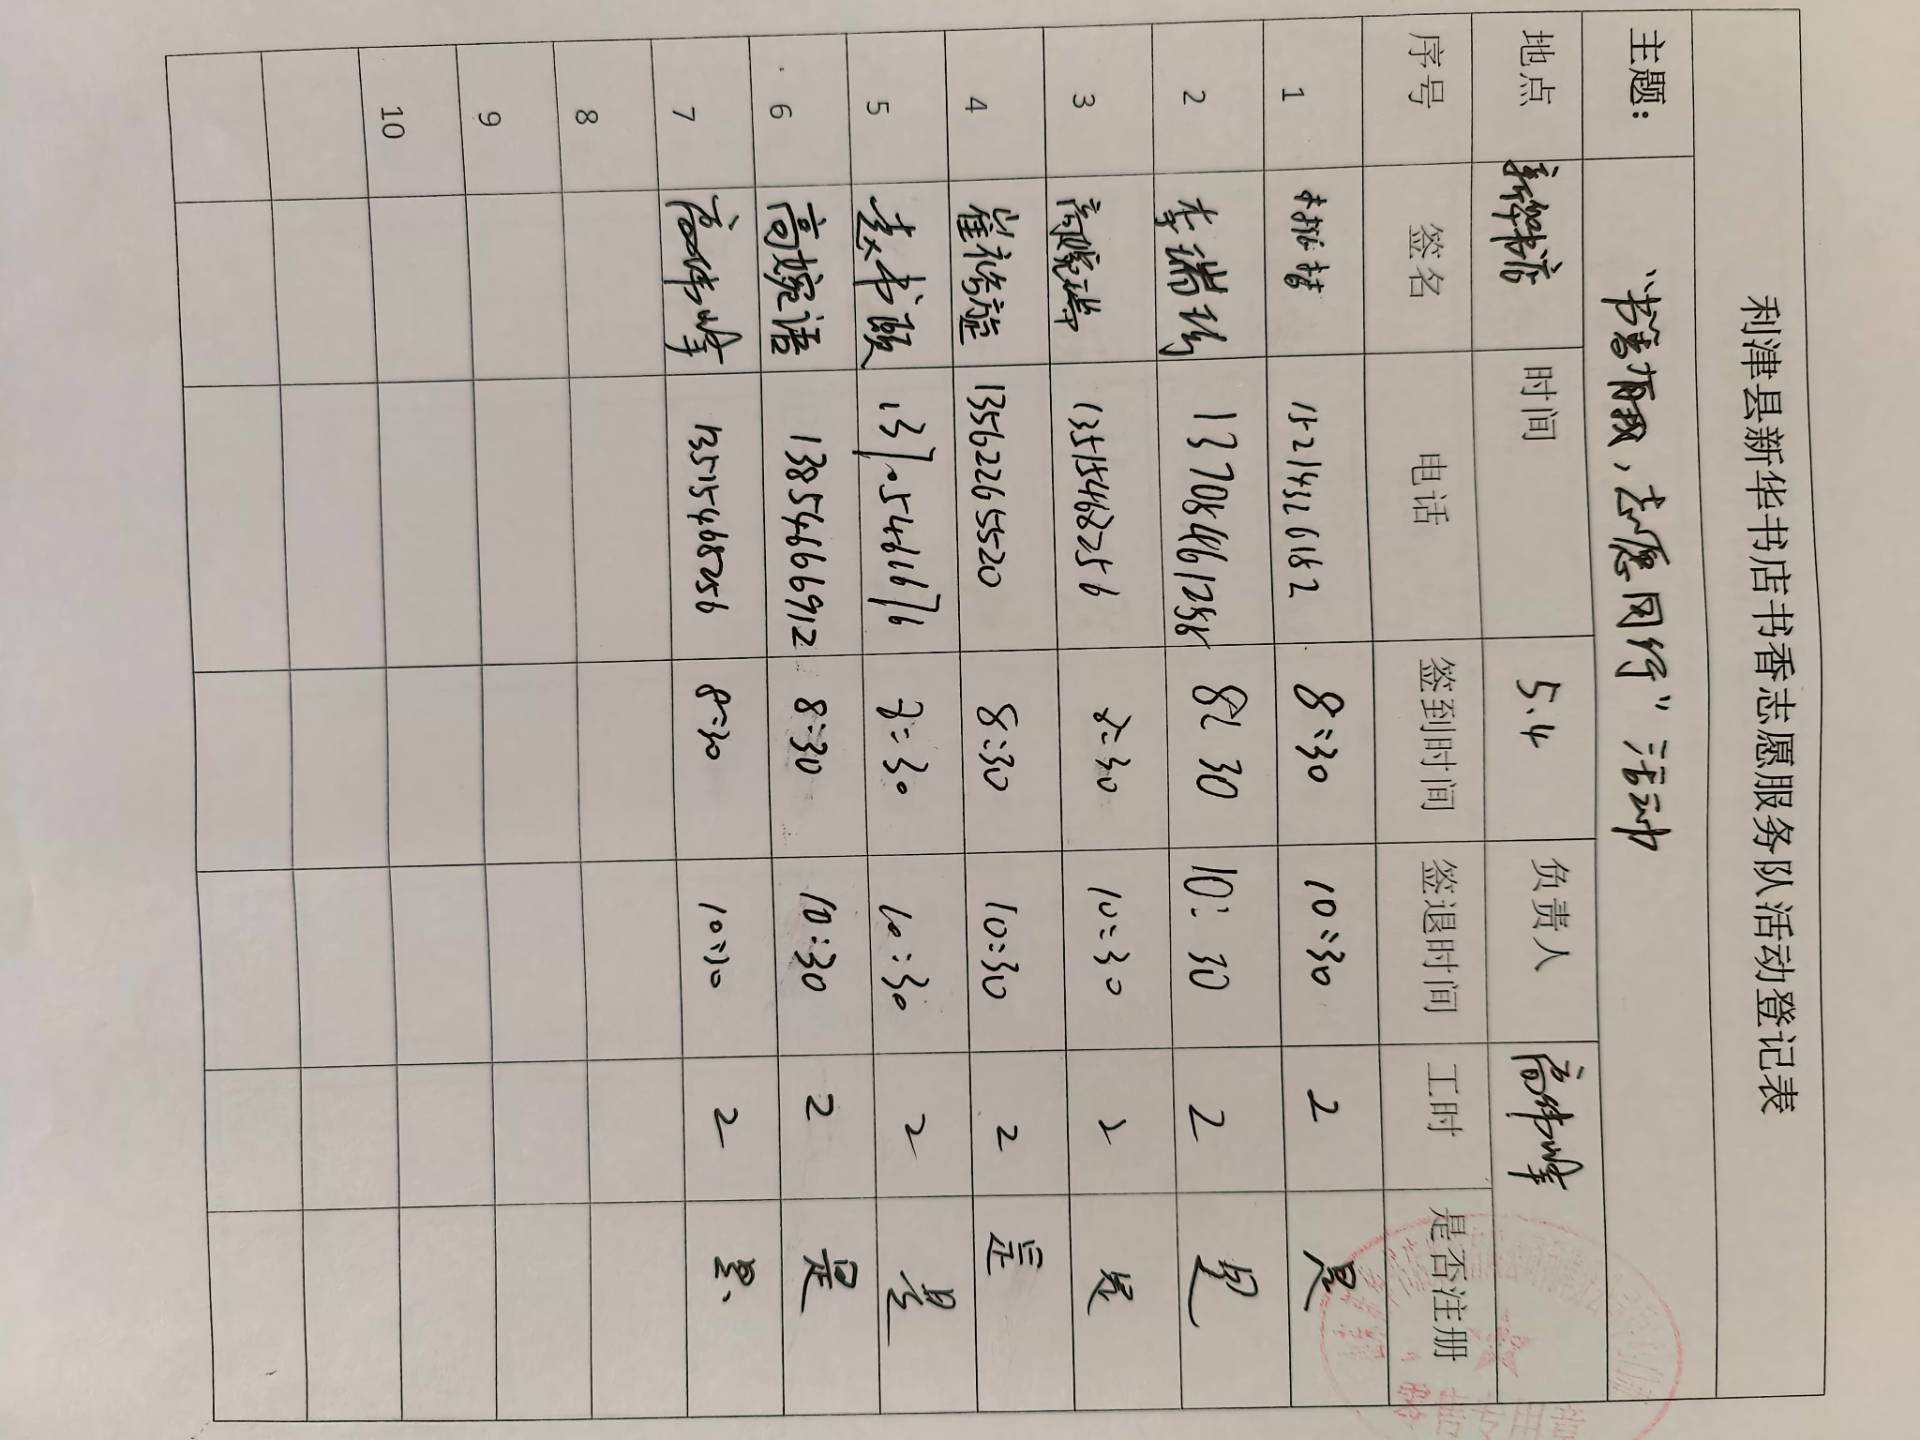 利津县新华书店书香志愿服务队活动登记表
主题： “书香有我，志愿同行”活动
地点 新华书店 时间 5.4 负责人 高伟峰
序号 签名 电话 签到时间 签退时间 工时 是否注册
1 15214326182 8:30 10:30 2 是
2 李瑞彬 13708461258 8:30 10:30 2 是
3 高晓 13515468256 8:30 10:30 2 是
4 崔 13562265520 8:30 10:30 2 是
5 袁书颐 8:30 10:30 2 是
6 高婉语 13854666912 8:30 10:30 2 是
7 高伟峰 13515468256 8:30 10:30 2 是
8
9
10